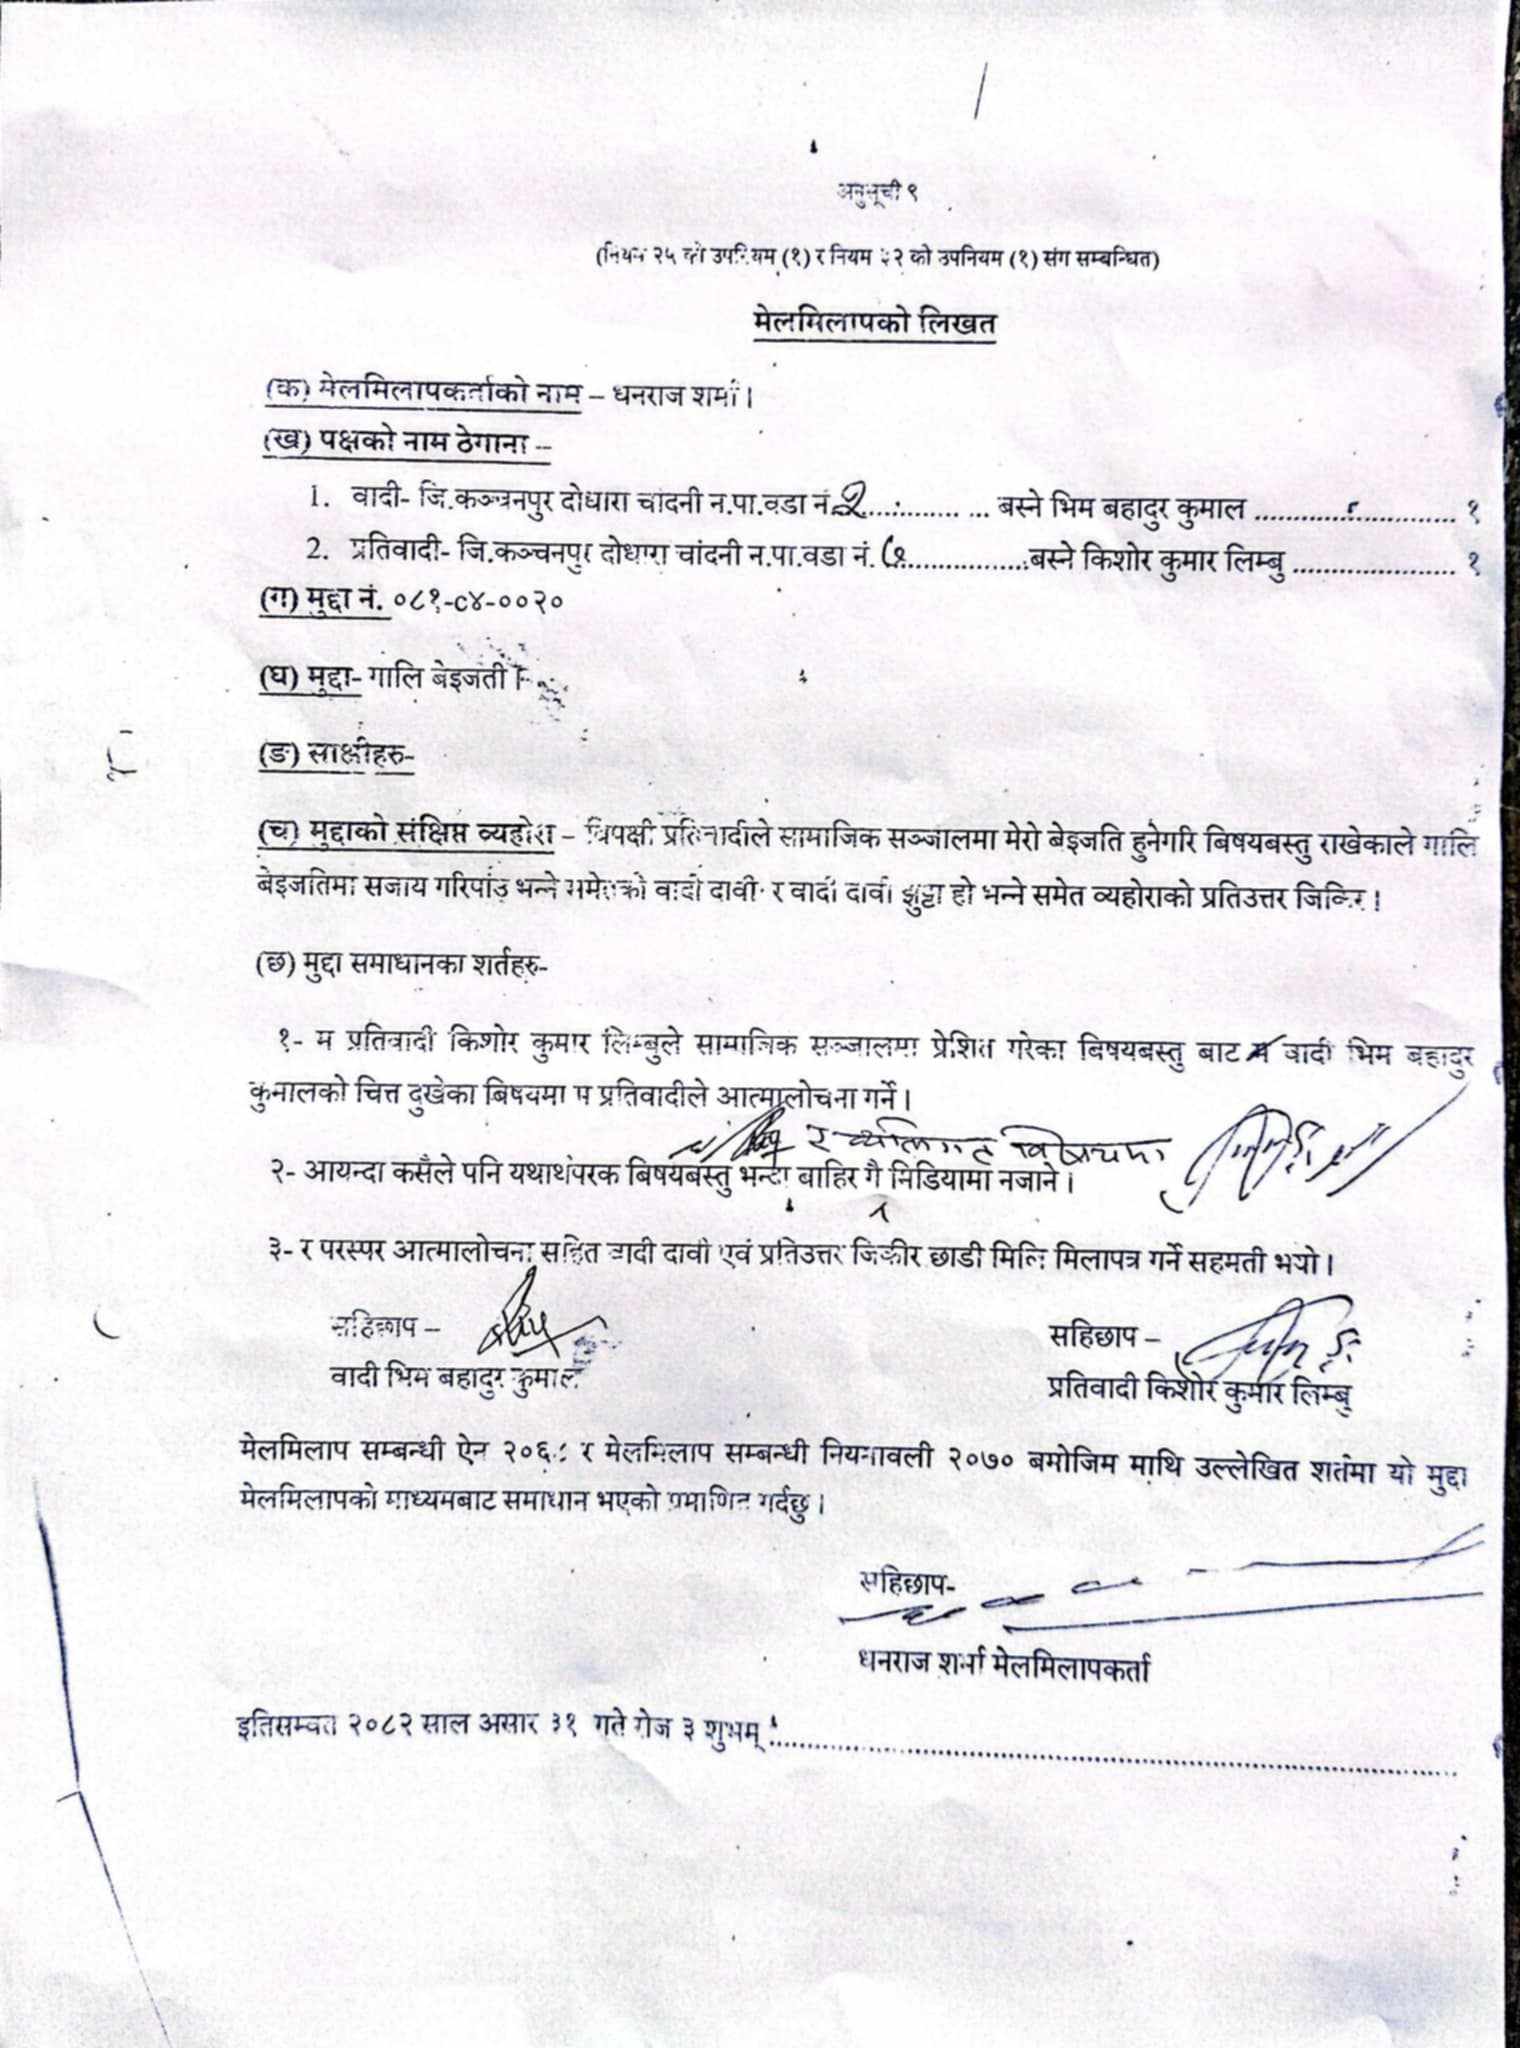 अनुसूची ९
(नियम २५ को उपनियम (१) र नियम ३२ को उपनियम (१) संग सम्बन्धित)
मेलमिलापको लिखत
(क) मेलमिलापकर्ताको नाम – धनराज शर्मा ।
(ख) पक्षको नाम ठेगाना –
1. वादी- जि.कञ्चनपुर दोधारा चांदनी न.पा.वडा नं.2............... ... बस्ने भिम बहादुर कुमाल ............................. १
2. प्रतिवादी- जि.कञ्चनपुर दोधारा चांदनी न.पा.वडा नं. ..................बस्ने किशोर कुमार लिम्बु ....................... १
(ग) मुद्दा नं. ०८१-c४-००२०
(घ) मुद्दा- गालि बेइजती ।
(ङ) साक्षीहरु-
(च) मुद्दाको संक्षिप्त व्यहोरा – विपक्षी प्रतिवादीले सामाजिक सञ्जालमा मेरो बेइजति हुनेगरि बिषयबस्तु राखेकाले गालि
बेइजतिमा सजाय गरिपाउ भन्ने समेतको वादी दावी र वादी दावी झुट्टा हो भन्ने समेत व्यहोराको प्रतिउत्तर जिकिर ।
(छ) मुद्दा समाधानका शर्तहरु-
१- म प्रतिवादी किशोर कुमार लिम्बुले सामाजिक सञ्जालमा प्रेशित गरेका बिषयबस्तु बाट वादी भिम बहादुर
कुमालको चित्त दुखेका बिषयमा म प्रतिवादीले आत्मालोचना गर्ने ।
र व्यक्तिगत विषयमा
२- आयन्दा कसैले पनि यथार्थपरक बिषयबस्तु भन्दा बाहिर गै मिडियामा नजाने ।
३- र परस्पर आत्मालोचना सहित वादी दावी एवं प्रतिउत्तर जिकीर छाडी मिलि मिलापत्र गर्ने सहमती भयो ।
सहिछाप – सहिछाप –
वादी भिम बहादुर कुमाल प्रतिवादी किशोर कुमार लिम्बु
मेलमिलाप सम्बन्धी ऐन २०६८ र मेलमिलाप सम्बन्धी नियमावली २०७० बमोजिम माथि उल्लेखित शर्तमा यो मुद्दा
मेलमिलापको माध्यमबाट समाधान भएको प्रमाणित गर्दछु ।
सहिछाप-
धनराज शर्मा मेलमिलापकर्ता
इतिसम्वत २०८२ साल असार ३१ गते रोज ३ शुभम् ..............................................................